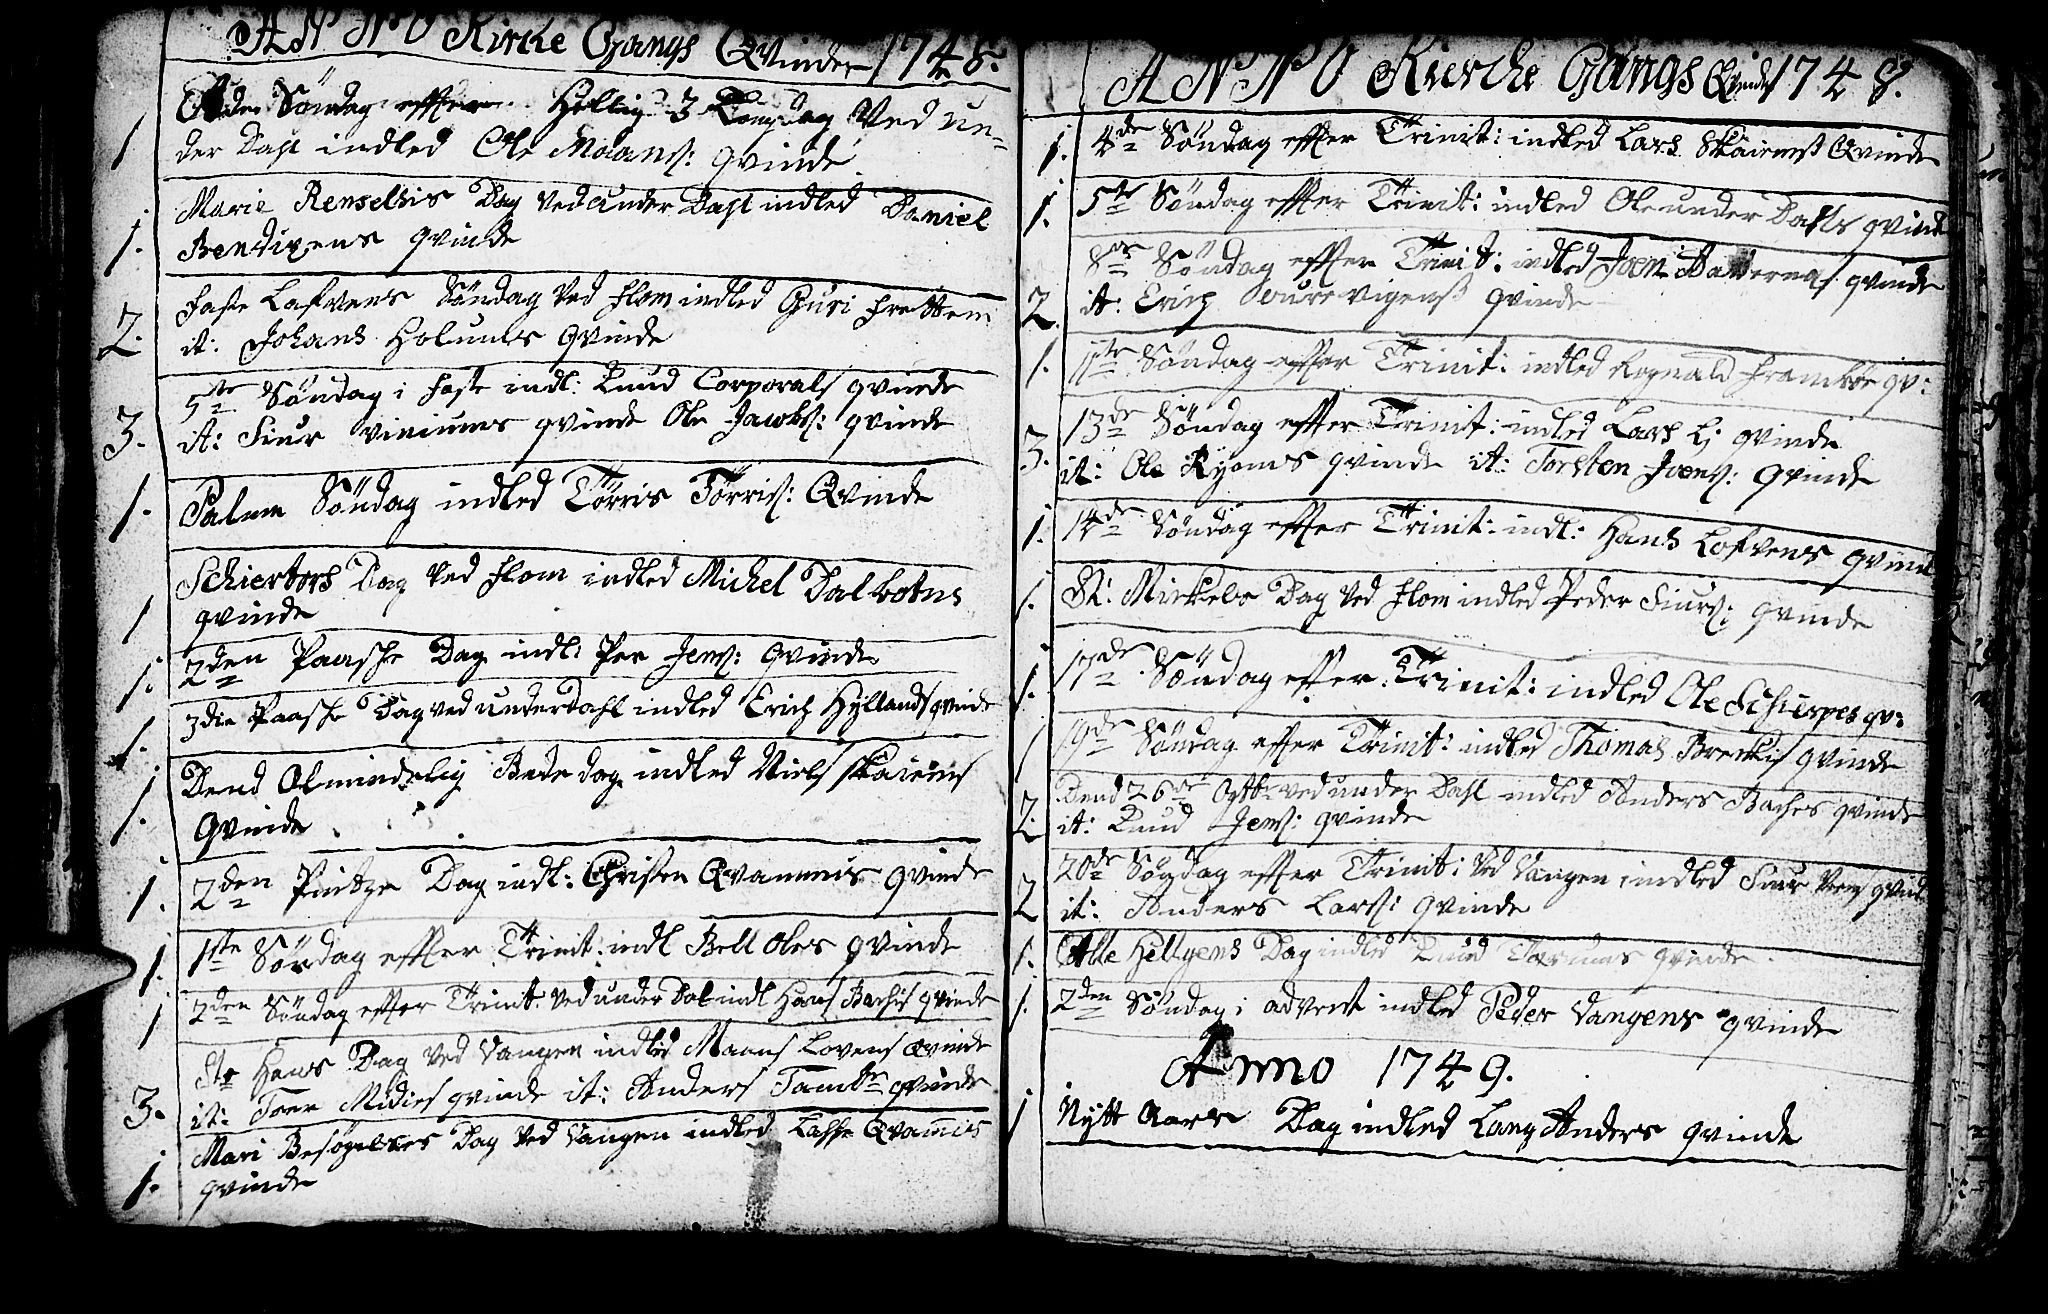 ANNO Kircke Gangs Qvinder 1748.
Søndag effter Hellig 3 Kong Dag Ved un-
1 der Dahl indled Ole Molans: qvinde
Marie Renselsis Dag Ved under Dahl indled Daniel
1. Bendixens qvinde
Faste Lafvens Søndag Ved Flom indled Guri Frettem
2. it: Johans Holums qvinde
5te Søndag i Faste indl: Knud Corporals qvinde
3. it: Siur Viniums qvinde Ole Jacobs: qvinde
1. Palme Søndag indled Törris Törris: Qvinde
Schiertors Dag Ved Flom indled Michel Dalbotns
1 qvinde
1. 2den Paasche Dag indl: Per Jens: qvinde
1. 3die Paasche Dag ved underdahl indled Erich Hyllands qvinde
Dend Almindelig Bede dag indled Niels Skaiems
1. Qvinde
1. 2den Pintze Dag indl: Christen Qvammis qvinde
1. 1ste Søndag effter Trinit: indl Bell Oles qvinde
1 2den Søndag effter Trinit: Ved under Dal indl Hans Bachis qvinde
Ste Hans Dag Ved Vangen indled Maans Lovens qvinde
3. it: Toer Midies qvinde it: Anders qvinde
Mari Besøgelses Dag Ved Vangen indled Lasse Qvamis
1. qvinde
ANNO Kiercke Gangs Qvinder 1748.
1. 4de Søndag effter Trinit: indled Lars Skaiems Qvinde
1. 5te Søndag effter Trinit: indled Ole under Dahls qvinde
8de Søndag effter Trinit: indled Joen qvinde
2. it: Erich vigens qvinde
1. 11te Søndag effter Trinit: indled Rognald Framboe qv:
13de Søndag effter Trinit: indled Lars Li qvinde
3. it: Ole Ryoms qvinde it: Torsten Joens: qvinde
1. 14de Søndag effter Trinit: indl: Hans Lofvens qvinde
1. St: Mickels Dag Ved Flom indled Peder Siurs: qvinde
1. 17de Søndag effter Trinit: indled Ole Schierpes qv:
1 19de Søndag effter Trinit: indled Thomas Breckis qvinde
Dend 26de Octbr ved under Dahl indled Anders Baches qvinde
2. it: Knud Jens: qvinde
20de Søndag effter Trinit: Ved Vangen indled Siur qvinde
2 it: Anders Lars: qvinde
1. Alle Helgens Dag indled Knud qvinde
1. 2den Søndag i advent indled Peder Vangens qvinde
Anno 1749.
1 Nytt Aars Dag indled Lang Anders qvinde